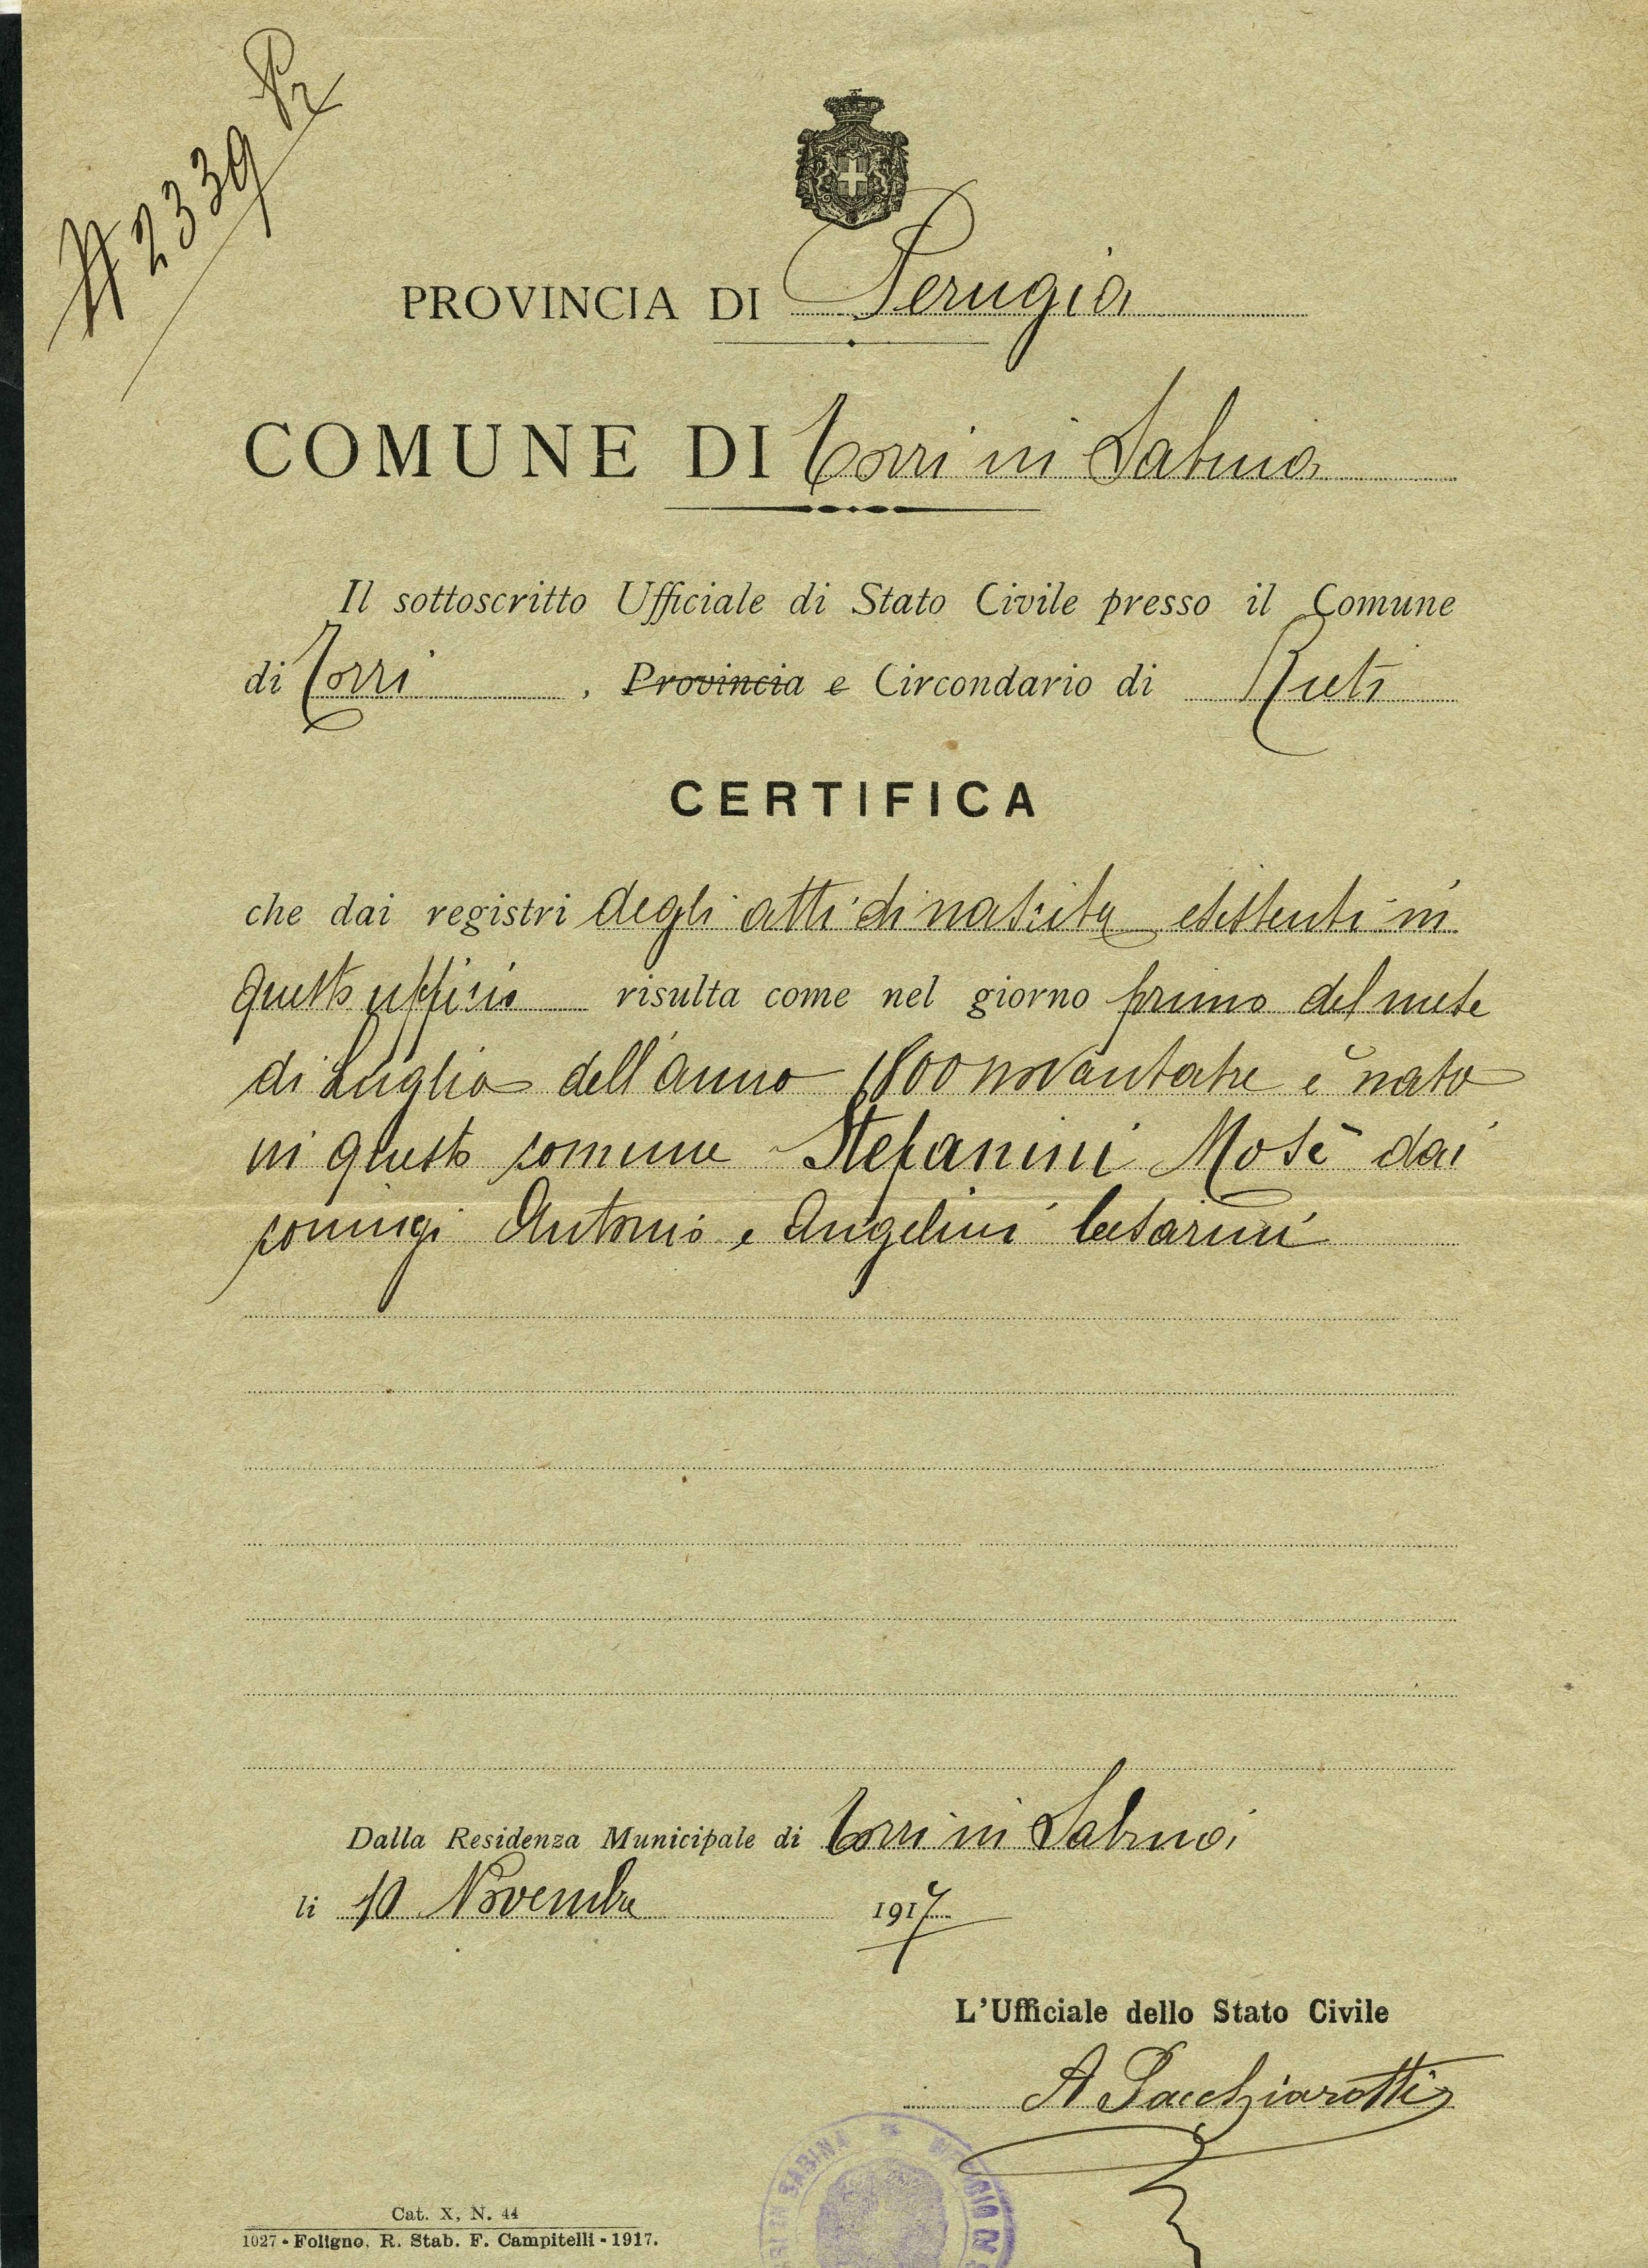 #2339 Pr
PROVINCIA DI Perugia
COMUNE DI Torri in Sabina
Il sottoscritto Ufficiale di Stato Civile presso il Comune
di Torri , Provincia e Circondario di Rieti
CERTIFICA
che dai registri degli atti di nascita esistenti in
questo ufficio risulta come nel giorno primo del mese
di Luglio dell'anno 1800novantatre è nato
in questo comune Stefanini Mosè dai
coniugi Antonio e Angelini Cesarini
Dalla Residenza Municipale di Torri in Sabina
li 10 Novembre 1917
L'Ufficiale dello Stato Civile
A Pacchiarotti
IN SABINA
Cat. X, N. 44
1027 - Foligno, R. Stab. F. Campitelli - 1917.